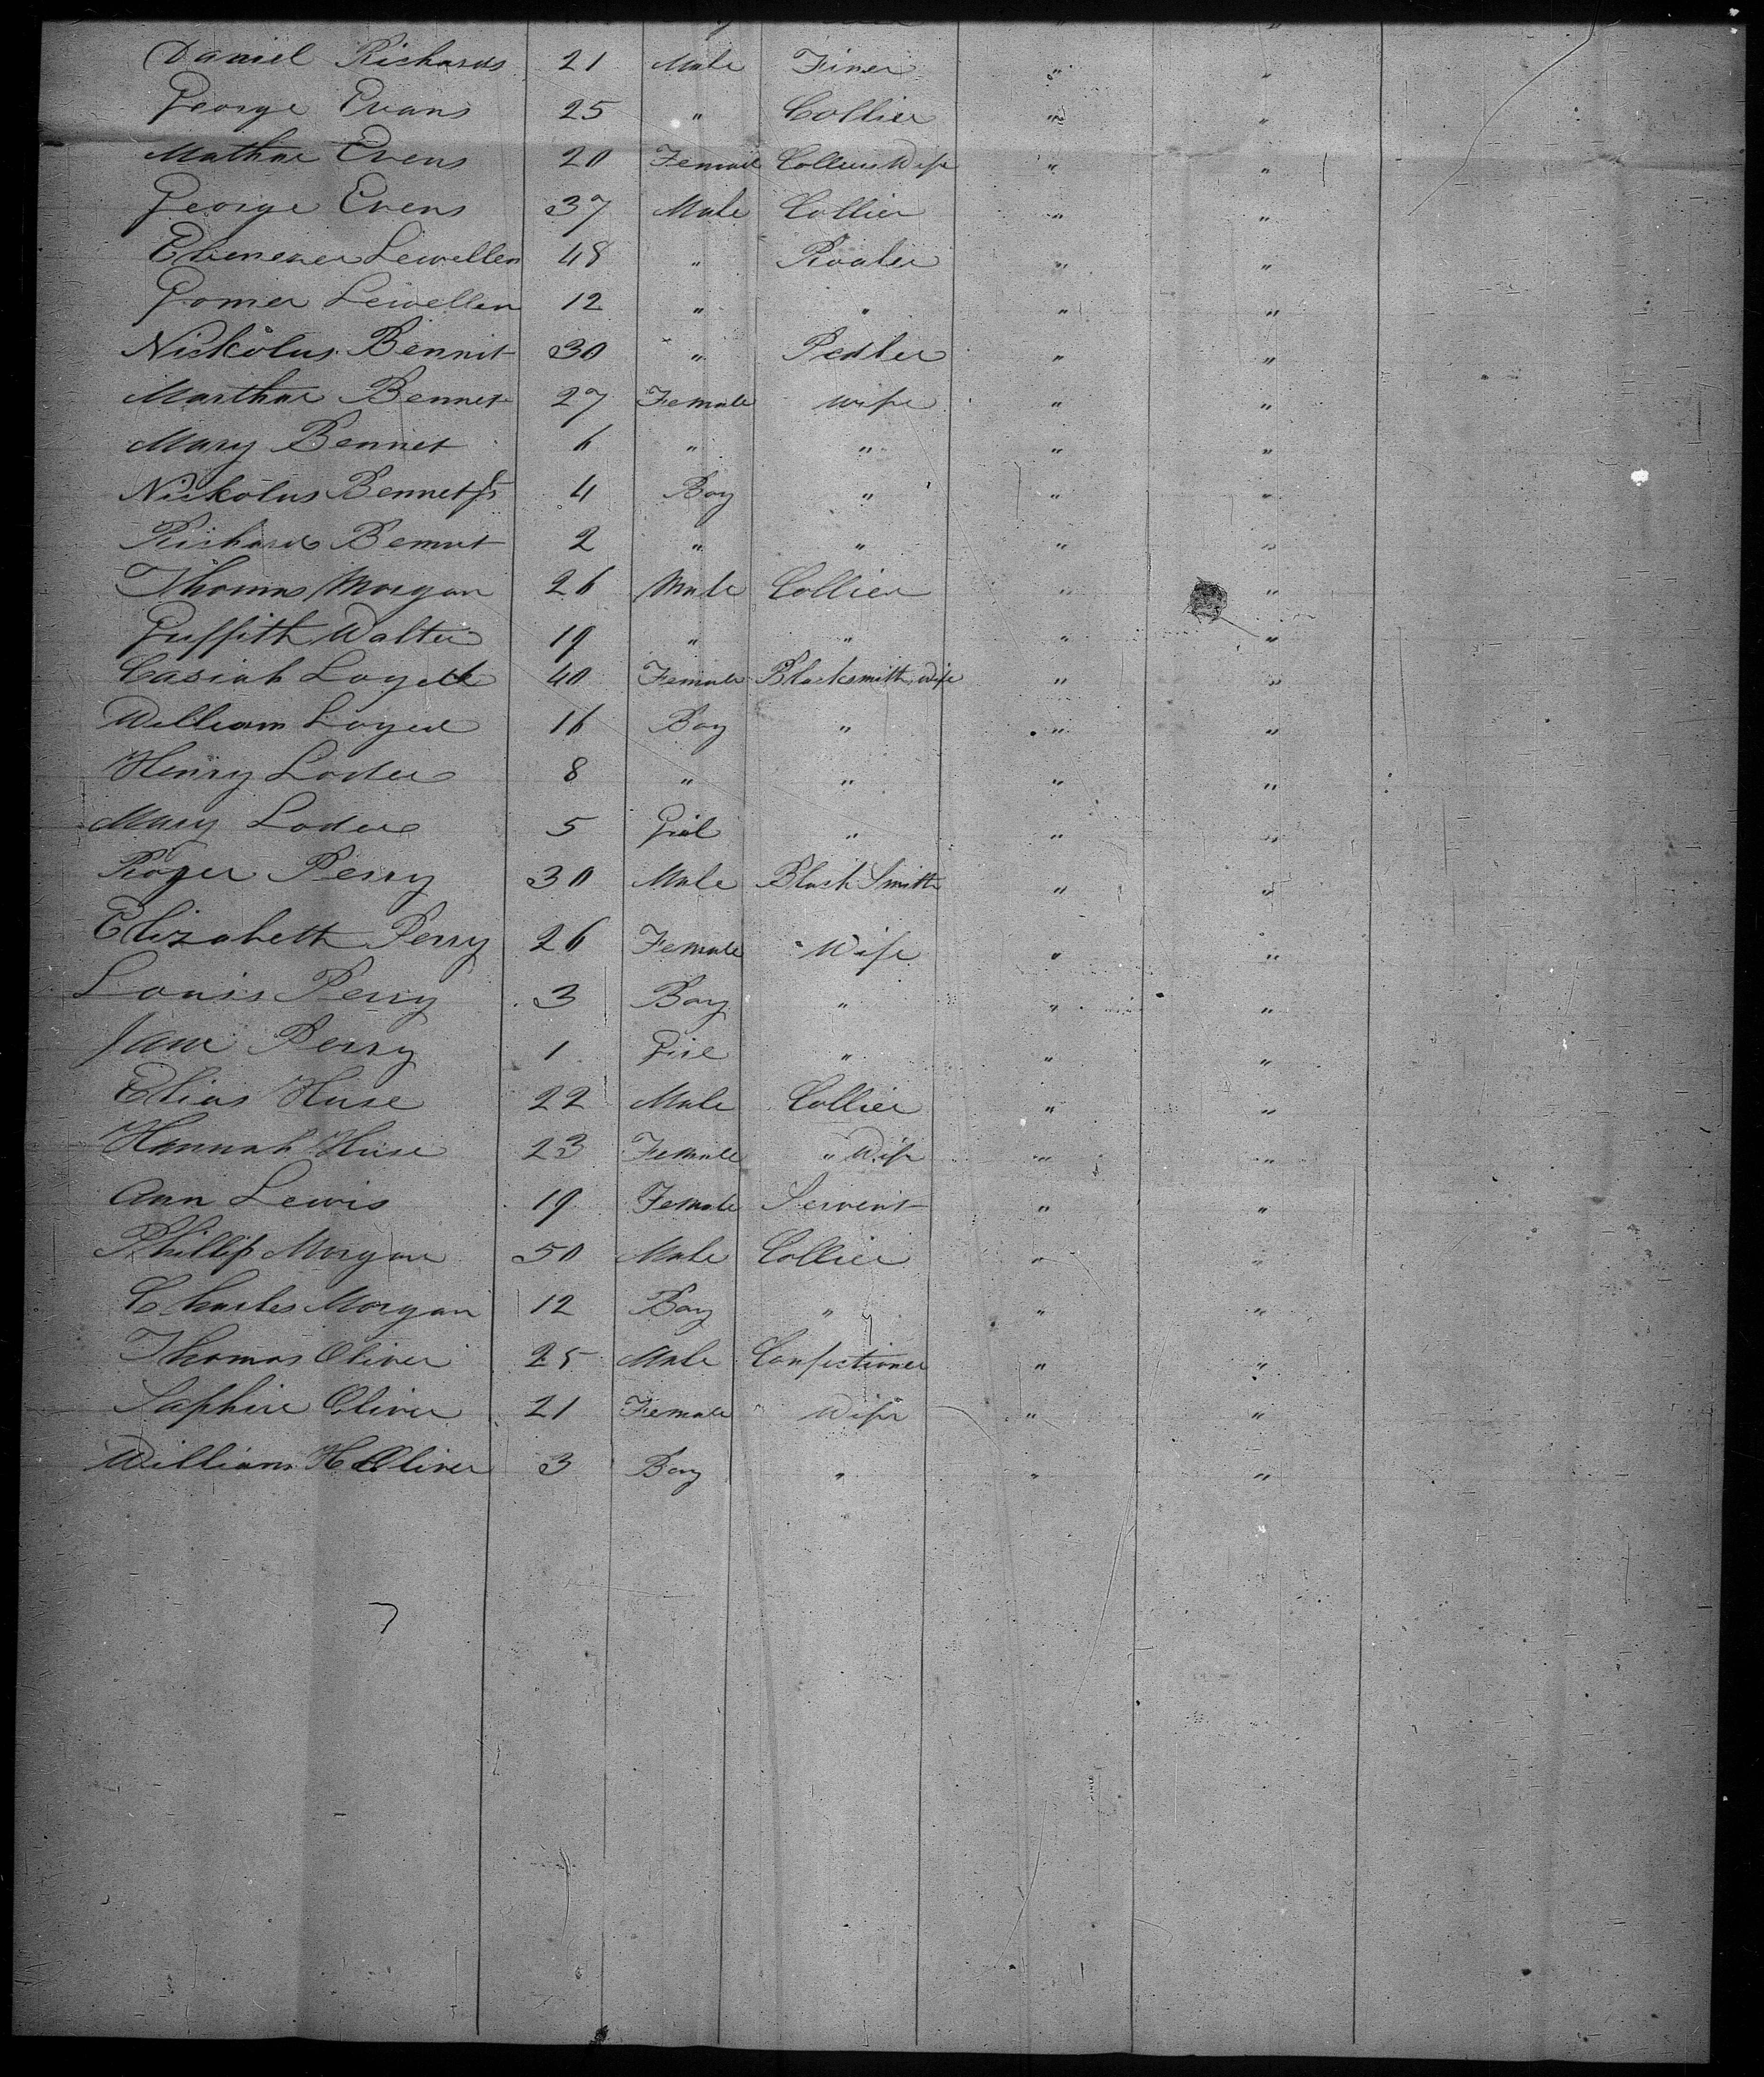 Daniel Richards 21 Male Finer " "
George Evans 25 " Collier " "
Mathar Evens 20 Female Colliers Wife " "
George Evens 37 Male Collier " "
Ebenezer Lewellen 48 " Roaler " "
Gomer Lewellen 12 " " " "
Nickolus Bennit 30 " Pedler " "
Marthar Bennet 27 Female Wife " "
Mary Bennet 6 " " " "
Nickolus Bennet Jr 4 Boy " " "
Richard Bennet 2 " " " "
Thomas Morgan 26 Male Collier " "
Griffith Walter 19 " " " "
Casiah Loyed 40 Female Blacksmith Wife " "
William Loyed 16 Boy " " "
Henry Loder 8 " " " "
Mary Loder 5 Girl " " "
Roger Perry 30 Male Black Smith " "
Elizabeth Perry 26 Female Wife " "
Louis Perry 3 Boy " " "
Jane Perry 1 Girl " " "
Elias Huse 22 Male Collier " "
Hannah Huse 23 Female " Wife " "
Ann Lewis 19 Female Servent " "
Phillip Morgan 50 Male Collier " "
Charles Morgan 12 Boy " " "
Thomas Oliver 25 Male Confectioner " "
Saphire Oliver 21 Female Wife " "
William H Oliver 3 Boy " " "